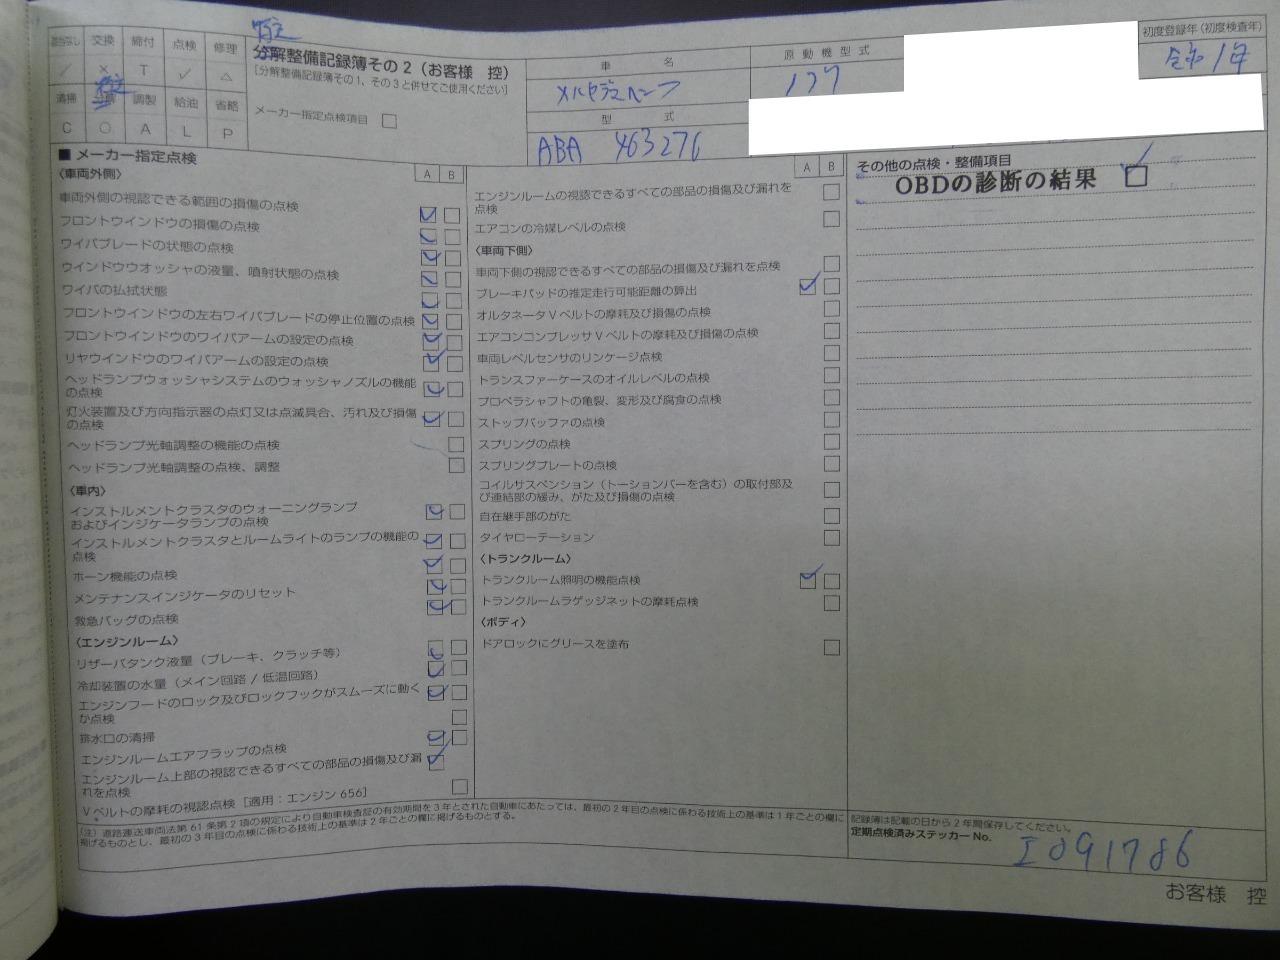 該当なし 交換 締付 点検 修理
／ × T ✓ △
清掃 分解 調製 給油 省略
C ○ A L P
特定
分解整備記録簿その2（お客様 控）
［分解整備記録簿その1、その3と併せてご使用ください］
メーカー指定点検項目 □
車 名
メルセデスベンツ
型 式
ABA 463276
原 動 機 型 式
177
初度登録年（初度検査年）
令和1年
■ メーカー指定点検
〈車両外側〉 A B
車両外側の視認できる範囲の損傷の点検
フロントウインドウの損傷の点検
ワイパブレードの状態の点検
ウインドウウオッシャの液量、噴射状態の点検
ワイパの払拭状態
フロントウインドウの左右ワイパブレードの停止位置の点検
フロントウインドウのワイパアームの設定の点検
リヤウインドウのワイパアームの設定の点検
ヘッドランプウォッシャシステムのウォッシャノズルの機能
の点検
灯火装置及び方向指示器の点灯又は点滅具合、汚れ及び損傷
の点検
ヘッドランプ光軸調整の機能の点検
ヘッドランプ光軸調整の点検、調整
〈車内〉
インストルメントクラスタのウォーニングランプ
およびインジケータランプの点検
インストルメントクラスタとルームライトのランプの機能の
点検
ホーン機能の点検
メンテナンスインジケータのリセット
救急バッグの点検
〈エンジンルーム〉
リザーバタンク液量（ブレーキ、クラッチ等）
冷却装置の水量（メイン回路 / 低温回路）
エンジンフードのロック及びロックフックがスムーズに動く
か点検
排水口の清掃
エンジンルームエアフラップの点検
エンジンルーム上部の視認できるすべての部品の損傷及び漏
れを点検
Vベルトの摩耗の視認点検［適用：エンジン 656］
A B
エンジンルームの視認できるすべての部品の損傷及び漏れを
点検
エアコンの冷媒レベルの点検
〈車両下側〉
車両下側の視認できるすべての部品の損傷及び漏れを点検
ブレーキパッドの推定走行可能距離の算出
オルタネータ V ベルトの摩耗及び損傷の点検
エアコンコンプレッサ V ベルトの摩耗及び損傷の点検
車両レベルセンサのリンケージ点検
トランスファーケースのオイルレベルの点検
プロペラシャフトの亀裂、変形及び腐食の点検
ストップバッファの点検
スプリングの点検
スプリングプレートの点検
コイルサスペンション（トーションバーを含む）の取付部及
び連結部の緩み、がた及び損傷の点検
自在継手部のがた
タイヤローテーション
〈トランクルーム〉
トランクルーム照明の機能点検
トランクルームラゲッジネットの摩耗点検
〈ボディ〉
ドアロックにグリースを塗布
その他の点検・整備項目
OBDの診断の結果 □
（注）道路運送車両法第 61 条第 2 項の規定により自動車検査証の有効期間を 3 年とされた自動車にあたっては、最初の 2 年目の点検に係わる技術上の基準は 1 年ごとの欄に
掲げるものとし、最初の 3 年目の点検に係わる技術上の基準は 2 年ごとの欄に掲げるものとする。
記録簿は記載の日から 2 年間保存してください。
定期点検済みステッカー No.
I091786
お客様 控